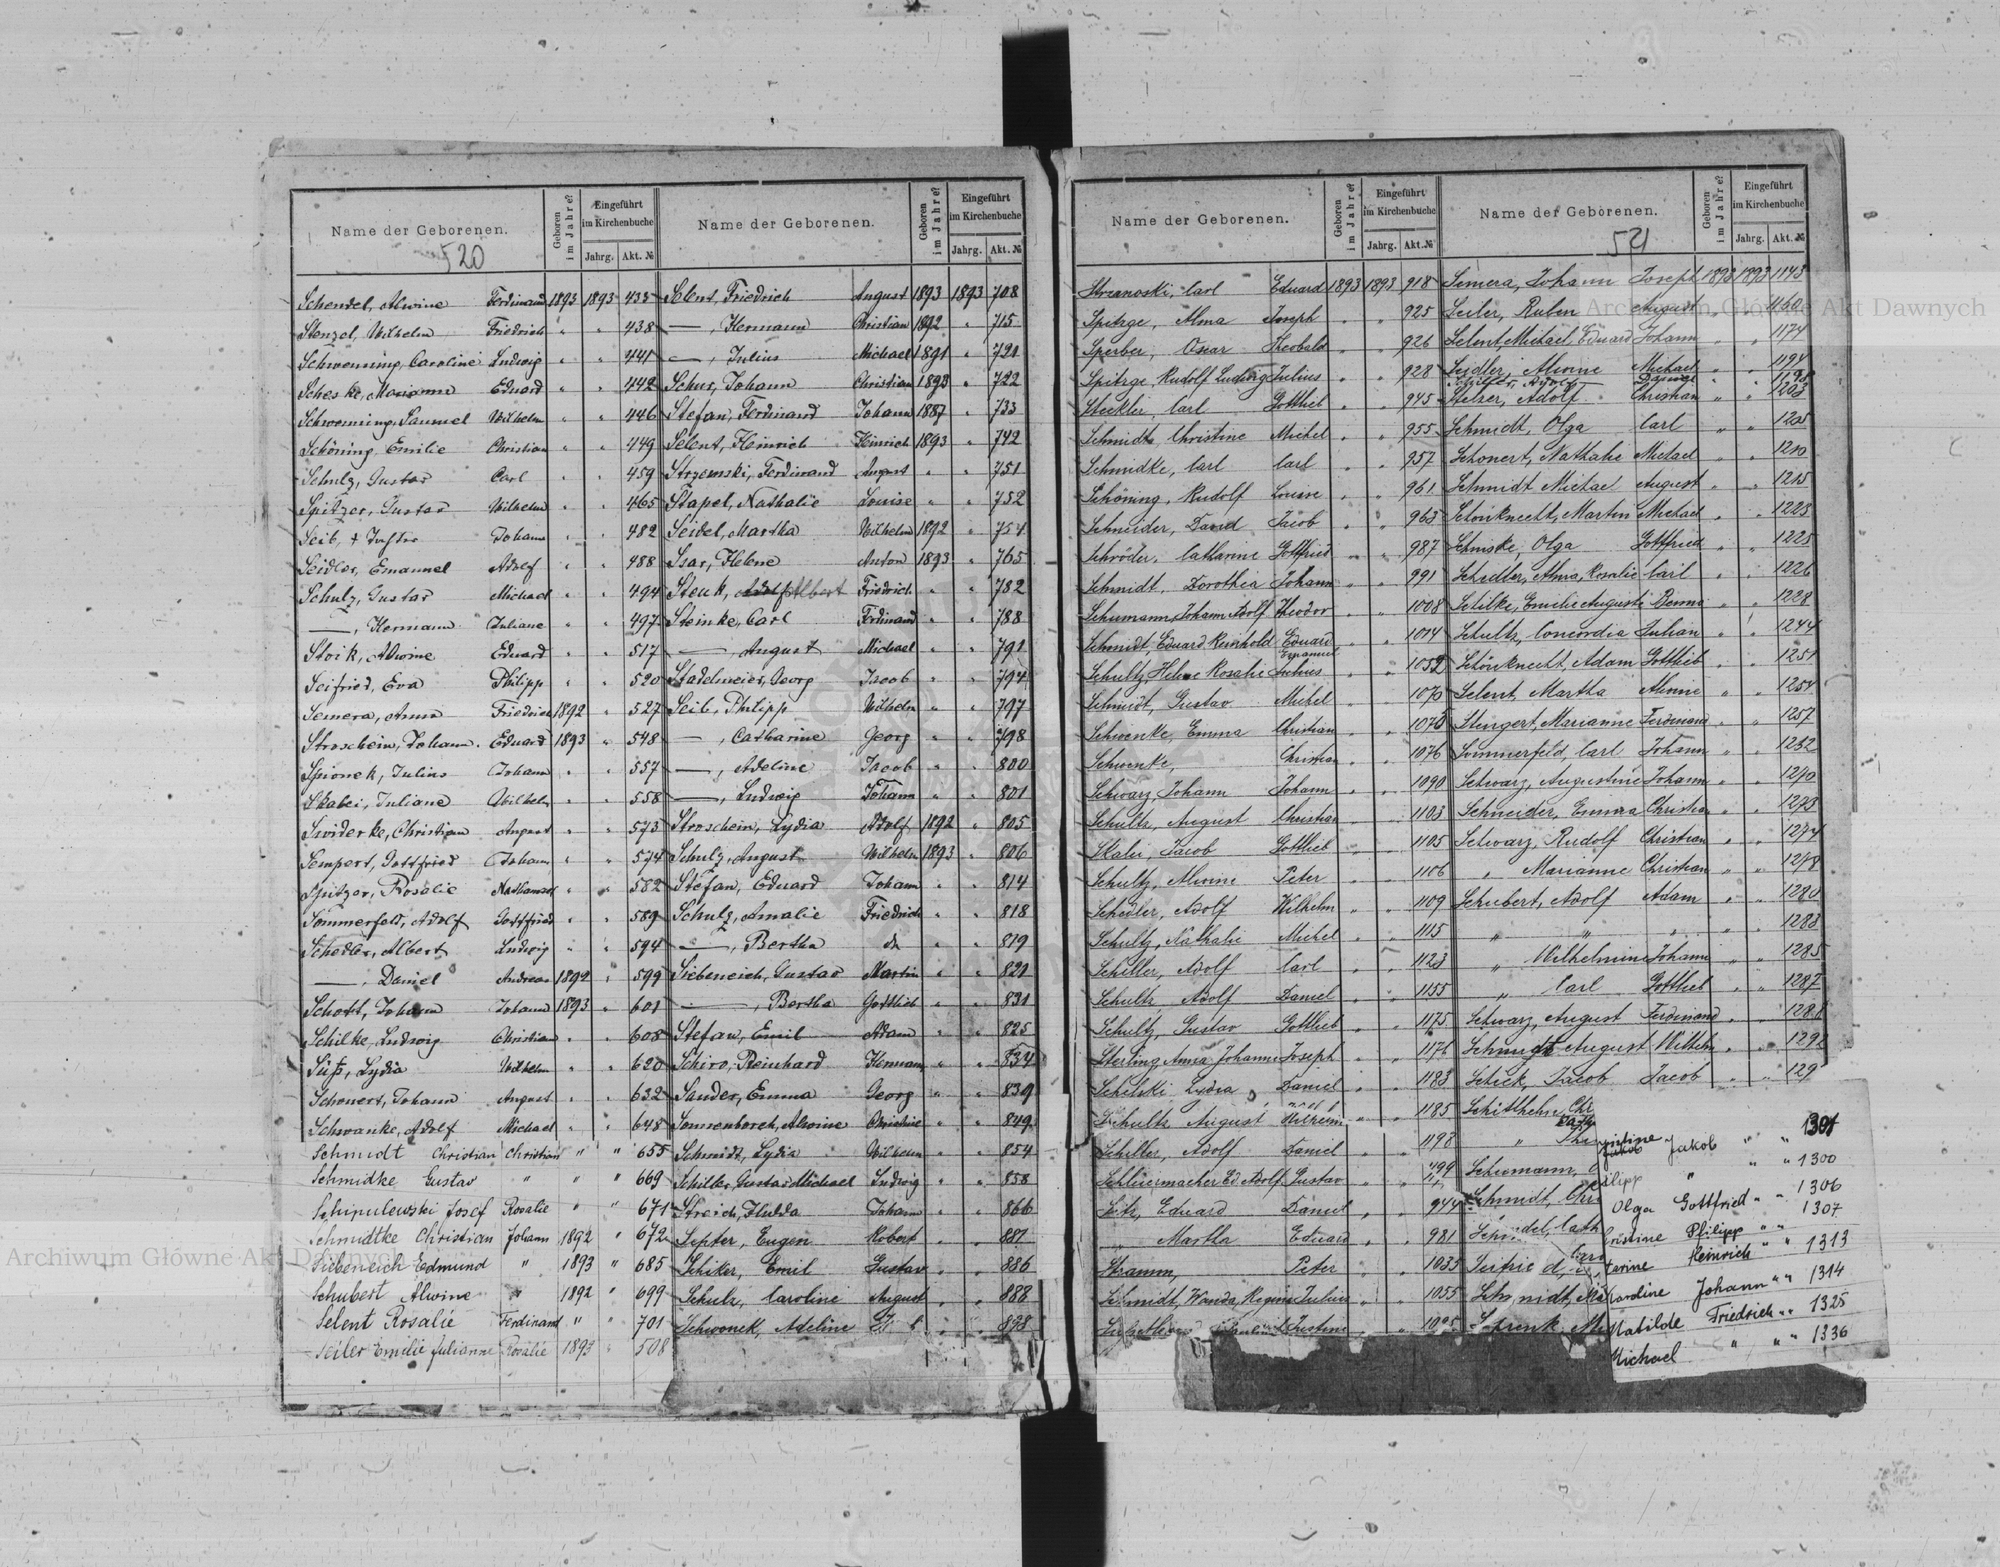 Name der Geborenen.
520
Geboren im Jahre?
Eingeführt im Kirchenbuche
Jahrg. Akt. №
Schendel, Alwine Ferdinand 1893 1893 433
Stenzel, Wilhelm Friedrich " " 438
Schwenning, Caroline Ludwig " " 441
Scheske, Marianna Eduard " " 442
Schwenning, Samuel Wilhelm " " 446
Schöning, Emilie Christian " " 449
Schulz, Gustav Carl " " 459
Spitzer, Gustav Wilhelm " " 465
Seib, + Johann " " 482
Seidler, Emanuel Adolf " " 488
Schulz, Gustav Michael " " 494
—, Hermann Juliane " " 497
Stoik, Alwine Eduard " " 517
Seifried, Eva Philipp " " 520
Semera, Anna Friedrich 1892 " 527
Stroschein, Johann Eduard 1893 " 548
Spionek, Julius Johann " " 557
Skabei, Juliane Wilhelm " " 558
Swiderke, Christian August " " 573
Sempert, Gottfried Johann " " 574
Spitzer, Rosalie " " 582
Sommerfeld, Adolf Gottfried " " 589
Schedler, Albert Ludwig " " 594
—, Daniel Andreas 1892 " 599
Schott, Johann Johann 1893 " 601
Schilke, Ludwig Christian " " 608
Süß, Lydia Wilhelm " " 620
Schonert, Johann August " " 632
Schwanke, Adolf Michael " " 648
Schmidt Christian Christian " " 655
Schmidke Gustav " " " 669
Schipulewski Josef Rosalie " " 671
Schmidtke Christian Johann 1892 " 672
Siebeneich Edmund " 1893 " 685
Schubert Alwine " 1892 " 699
Selent Rosalie Ferdinand " " 701
Seiler Emilie Julianne Rosalie 1893 " 508
Name der Geborenen.
Geboren im Jahre?
Eingeführt im Kirchenbuche
Jahrg. Akt. №
Selent, Friedrich August 1893 1893 708
—, Hermann Christian 1892 " 715
—, Julius Michael 1891 " 721
Schur, Johann Christian 1893 " 722
Stefan, Ferdinand Johann 1887 " 733
Selent, Heinrich Heinrich 1893 " 742
Strzemski, Ferdinand August " " 751
Stapel, Nathalie Louise " " 752
Seidel, Martha Wilhelm 1892 " 754
Ssar, Helene Anton 1893 " 765
Steuk, Albert Friedrich " " 782
Steinke, Carl Ferdinand " " 788
—, August Michael " " 791
Stadelmeier, Georg Jacob " " 794
Seib, Philipp Wilhelm " " 797
—, Catharine Georg " " 798
—, Adeline Jacob " " 800
—, Ludwig Johann " " 801
Stroschein, Lydia Adolf 1892 " 805
Schulz, August Wilhelm 1893 " 806
Stefan, Eduard Johann " " 814
Schulz, Amalie Friedrich " " 818
—, Bertha do " " 819
Siebeneich, Gustav Martin " " 821
—, Bertha Gottlieb " " 831
Stefan, Emil Adam " " 825
Schiro, Reinhard Herman " " 834
Sander, Emma Georg " " 839
Sonnenborch, Alwine Christine " " 849
Schmidt, Lydia Wilhelm " " 854
Schiller, Gustav Michael Ludwig " " 858
Streich, Hulda Johann " " 866
Septer, Eugen Robert " " 881
Schiker, Emil Gustav " " 886
Schulz, Caroline August " " 888
Schwonek, Adeline " " 898
Name der Geborenen.
Geboren im Jahre?
Eingeführt im Kirchenbuche
Jahrg. Akt. №
Strzanoski, Carl Eduard 1893 1893 918
Spitzge, Alma Joseph " " 925
Sperber, Oscar Theobald " " 926
Spitzge, Rudolf Ludwig Julius " " 928
Steckler, Carl Gottlieb " " 945
Schmidt, Christine Michel " " 955
Schmidke, Carl Carl " " 957
Schöning, Rudolf Louise " " 961
Schneider, David Jacob " " 963
Schröder, Catharine Gottfried " " 987
Schmidt, Dorothea Johann " " 991
Schumann, Johann Adolf Theodor " " 1008
Schmidt, Eduard Reinhold Eduard " " 1014
Schultz, Helene Rosalie Emanuel Julius " " 1052
Schmidt, Gustav Michel " " 1070
Schwenke, Emma Christian " " 1075
Schwenke, Christian " " 1076
Schwarz, Johann Johann " " 1090
Schultz, August Christian " " 1103
Skalei, Jacob Gottlieb " " 1105
Schultz, Alwine Peter " " 1106
Schedler, Adolf Wilhelm " " 1109
Schultz, Nathalie Michel " " 1115
Schiller, Adolf Carl " " 1123
Schultz Adolf Daniel " " 1155
Schultz, Gustav Gottlieb " " 1175
Sterling Anna Johanne Joseph " " 1176
Schelski Lydia Daniel " " 1183
Schultz August Wilhelm " " 1185
Schiller, Adolf Daniel " " 1198
Schleiermacher Ed. Adolf Gustav " " 499
Seitz, Eduard Daniel " " 944
" Martha Eduard " " 981
Stramm, Peter " " 1033
Schmidt, Wanda, Regine Julius " " 1055
Justine " " 1095
Name der Geborenen.
521
Geboren im Jahre?
Eingeführt im Kirchenbuche
Jahrg. Akt. №
Semera, Johann Joseph 1893 1893 1143
Seiler, Ruben August " " 1160
Selent, Michael, Eduard Johann " " 1174
Seidler, Alwine Michael " " 1194
Schiller, Adolf Daniel " " 1198
Stelzer, Adolf Christian " " 1203
Schmidt, Olga Carl " " 1205
Schonert, Nathalie Michael " " 1210
Schmidt Michael August " " 1215
Schönknecht, Martin Michael " " 1223
Schmske, Olga Gottfried " " 1225
Schedler, Alma, Rosalie Carl " " 1226
Schilke, Emilie Auguste Benno " " 1228
Schultz, Concordia Julian " " 1244
Schönknecht, Adam Gottlieb " " 1251
Selent, Martha Alwine " " 1254
Stengert, Marianne Ferdinand " " 1257
Sommerfeld, Carl Johann " " 1232
Schwarz, Augustine Johann " " 1270
Schneider, Emma Christian " " 1273
Schwarz, Rudolf Christian " " 1274
" Marianne Christian " " 1278
Schubert, Adolf Adam " " 1280
" " " " " 1283
" Wilhelmine Johann " " 1285
" Carl Gottlieb " " 1287
Schwarz, August Ferdinand " " 1288
Schmidt August Wilhelm " " 1292
Schick, Jacob Jacob " " 129
Schitthelm, Chr
istine Jakob " " 1301
" Phi
ilipp " " " 1300
Schumann, O
Olga Gottfried " " 1306
Schmidt, Chri
ristine Philipp " " 1307
Schmidel, Cath
tarine Heinrich " " 1313
Seifried,
Johann " " 1314
Schmidt, Ma
Matilde Friedrich " " 1325
Schrenk, Mi
Michael " " " 1336
Archiwum Główne Akt Dawnych
Archiwum Główne Akt Dawnych